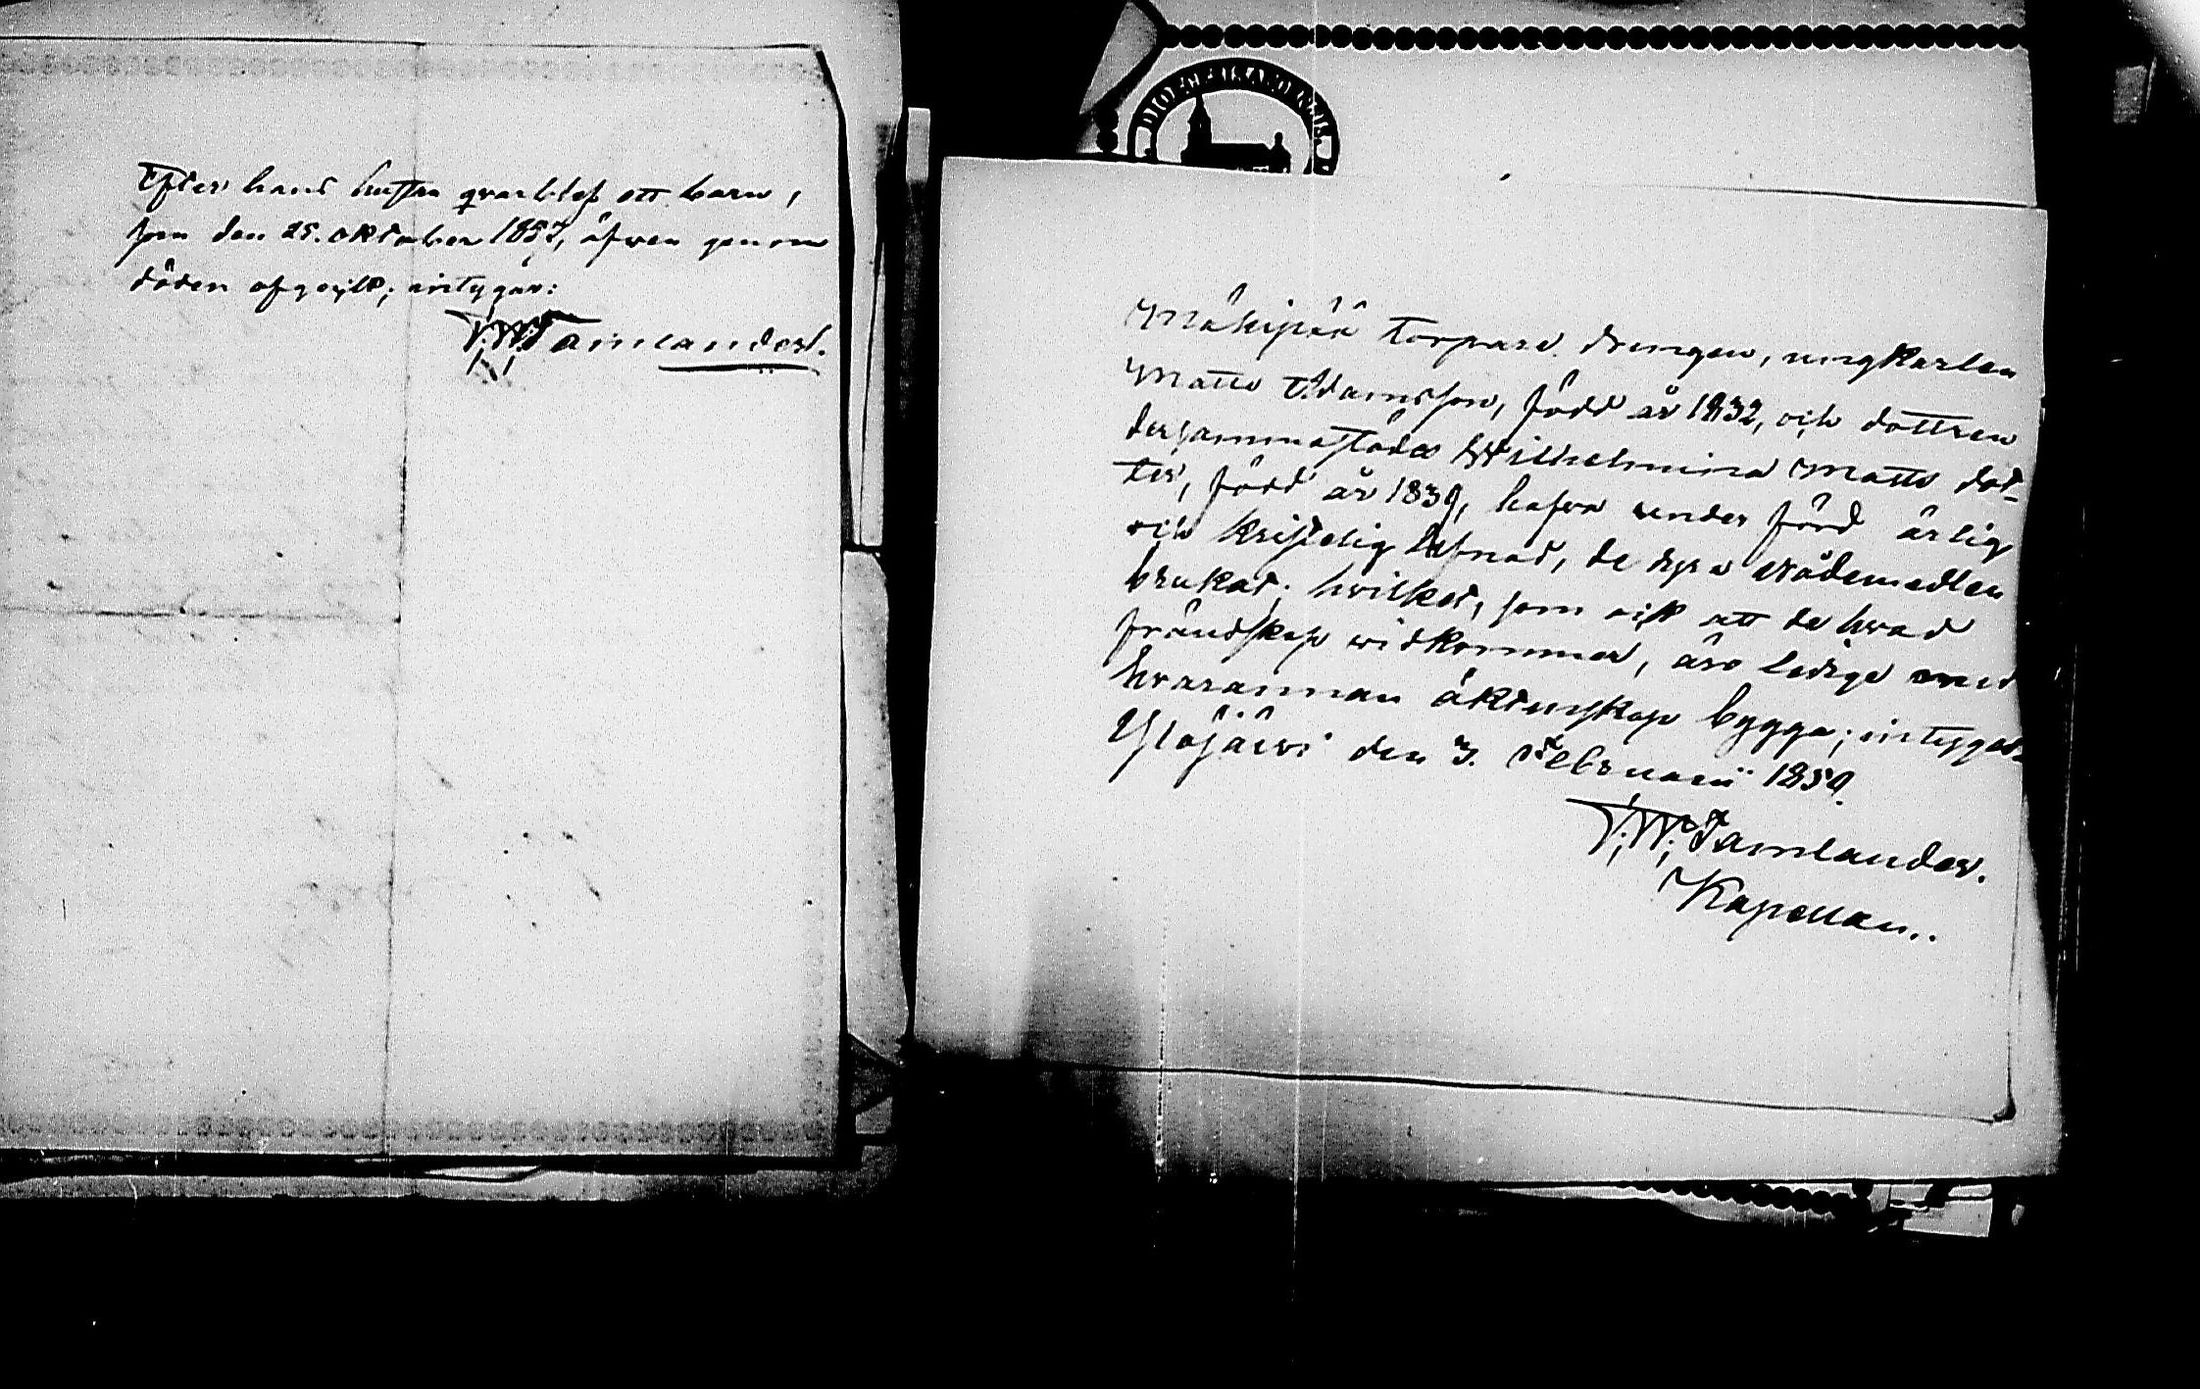 Efter hans hustru qvarblef ett barn,
som den 25. oktober 1857, äfven genom
döden afgick; intygar:
F.W. Tamlander.
DIOECESIS ABOENSIS
Mäkipää Torpare drengen, ungkarlen
Matts Adamsson, född år 1832, och dottren
dersammastädes Wilhelmina Matts dot-
ter, född år 1839, hafva under förd ärlig
och kristelig lefnad, de dyra nådemedlen
brukat; hvilket, som ock att de hvad
frändskap widkommer, äro ledige med
hvarannan äktenskap bygga; intygas.
Ylöjärvi den 3. Februarii 1859.
F.W. Tamlander.
Kapellan.